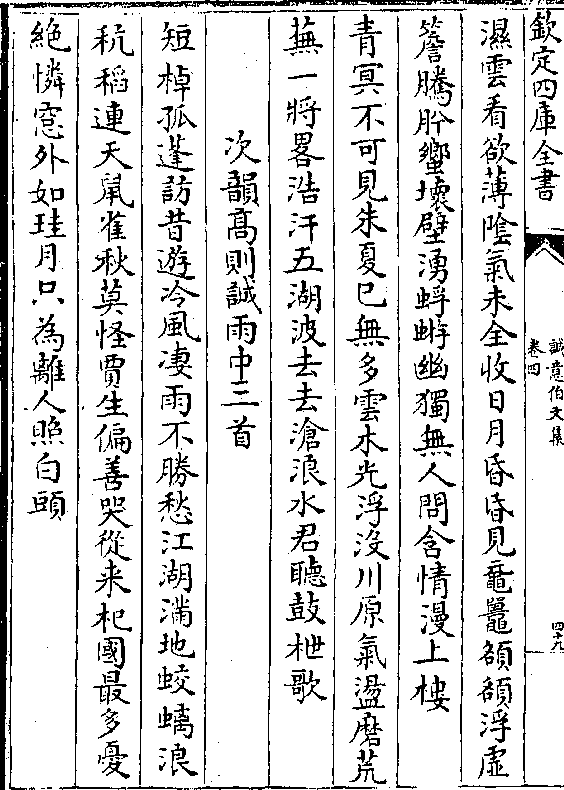 欽定四庫全書
誠意伯文集
卷四
四十九
濕雲看欲薄陰氣未全收日月昏昏見黿鼉頟頟浮虛
簷騰肸蠁壞壁湧蜉蝣幽獨無人問含情漫上樓
青冥不可見朱夏已無多雲木光浮沒川原氣盪磨荒
蕪一將畧浩汗五湖波去去滄浪水君聽鼓枻歌
次韻高則誠雨中三首
短棹孤蓬訪昔遊冷風凄雨不勝愁江湖滿地蛟螭浪
秔稻連天䑕雀秋莫怪賈生偏善哭從来杞國最多憂
絶憐窓外如珪月只為離人照白頭